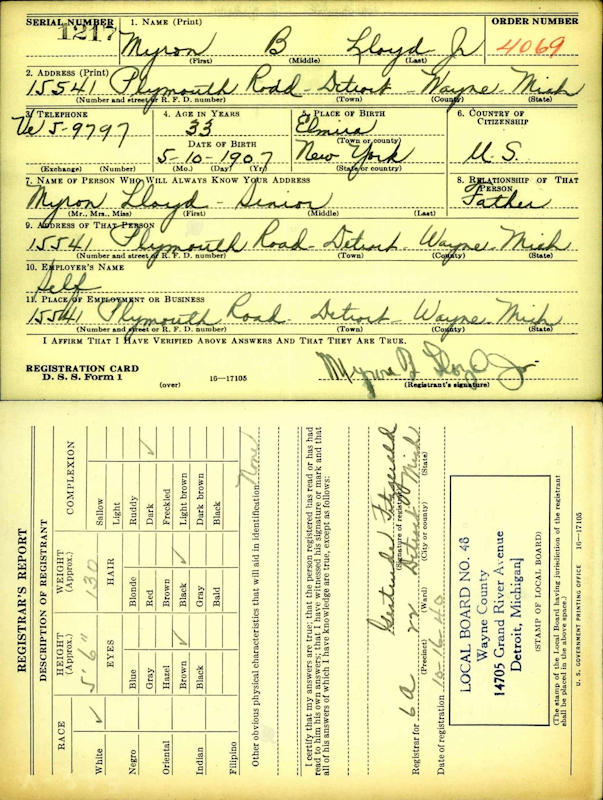 SERIAL NUMBER
1217
1. NAME (Print)
ORDER NUMBER
Myron B Lloyd Jr
4069
(First) (Middle) (Last)
2. ADDRESS (Print)
15541 Plymouth Road - Detroit - Wayne - Mich
(Number and street or R. F. D. number) (Town) (County) (State)
3. TELEPHONE
4. AGE IN YEARS
5. PLACE OF BIRTH
6. COUNTRY OF CITIZENSHIP
Ve 5-9797
33
Elmira
(Town or county)
DATE OF BIRTH
5-10-1907
New York
U. S.
(Exchange) (Number) (Mo.) (Day) (Yr.) (State or country)
7. NAME OF PERSON WHO WILL ALWAYS KNOW YOUR ADDRESS
8. RELATIONSHIP OF THAT PERSON
Myron Lloyd - Senior
Father
(Mr., Mrs., Miss) (First) (Middle) (Last)
9. ADDRESS OF THAT PERSON
15541 Plymouth Road - Detroit - Wayne - Mich
(Number and street or R. F. D. number) (Town) (County) (State)
10. EMPLOYER'S NAME
Self
11. PLACE OF EMPLOYMENT OR BUSINESS
15541 Plymouth Road. Detroit - Wayne - Mich
(Number and street or R. F. D. number) (Town) (County) (State)
I AFFIRM THAT I HAVE VERIFIED ABOVE ANSWERS AND THAT THEY ARE TRUE.
REGISTRATION CARD
D. S. S. Form 1
(over)
16—17105
Myron B Lloyd Jr.
(Registrant's signature)
REGISTRAR'S REPORT
DESCRIPTION OF REGISTRANT
RACE
HEIGHT (Approx.)
WEIGHT (Approx.)
COMPLEXION
5' 6"
130
White ✓
EYES
HAIR
Sallow
Light
Negro
Blue
Blonde
Ruddy
Gray
Red
Dark ✓
Oriental
Hazel
Brown
Freckled
Brown ✓
Black ✓
Light brown
Indian
Black
Gray
Dark brown
Bald
Black
Filipino
Other obvious physical characteristics that will aid in identification None
I certify that my answers are true; that the person registered has read or has had
read to him his own answers; that I have witnessed his signature or mark and that
all of his answers of which I have knowledge are true, except as follows:
Gertrude Fitzgerald
(Signature of registrar)
Registrar for 6A 22 Detroit Mich
(Precinct) (Ward) (City or county) (State)
Date of registration 10-16-40
LOCAL BOARD NO. 48
Wayne County
14705 Grand River Avenue
Detroit, Michigan
(STAMP OF LOCAL BOARD)
(The stamp of the Local Board having jurisdiction of the registrant
shall be placed in the above space.)
U. S. GOVERNMENT PRINTING OFFICE 16—17105